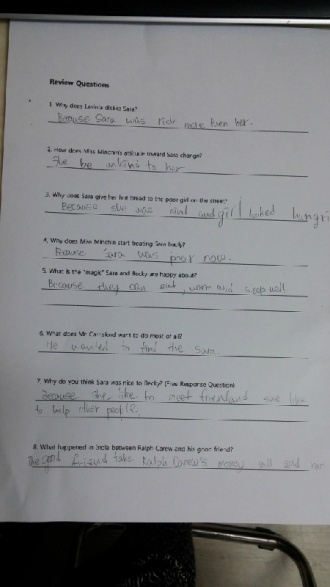 Review Questions
1. Why does Lavinia dislike Sara?
Because Sara was rich more then her.
2. How does Miss Minchin's attitude toward Sara change?
She to her
3. Why does Sara give her hot bread to the poor girl on the street?
Because she was and girl looked hungri
4. Why does Miss Minchin start treating Sara badly?
Because Sara was poor now.
5. What is the "magic" Sara and Becky are happy about?
Because they can eat, warm and sleep well
6. What does Mr. Carrisford want to do most of all?
He wanted to find the Sara
7. Why do you think Sara was nice to Becky? (Free Response Question)
Because she like to meet friend and she like
to help other people.
8. What happened in India between Ralph Carew and his good friend?
The good friend take Ralph Carew's money all and